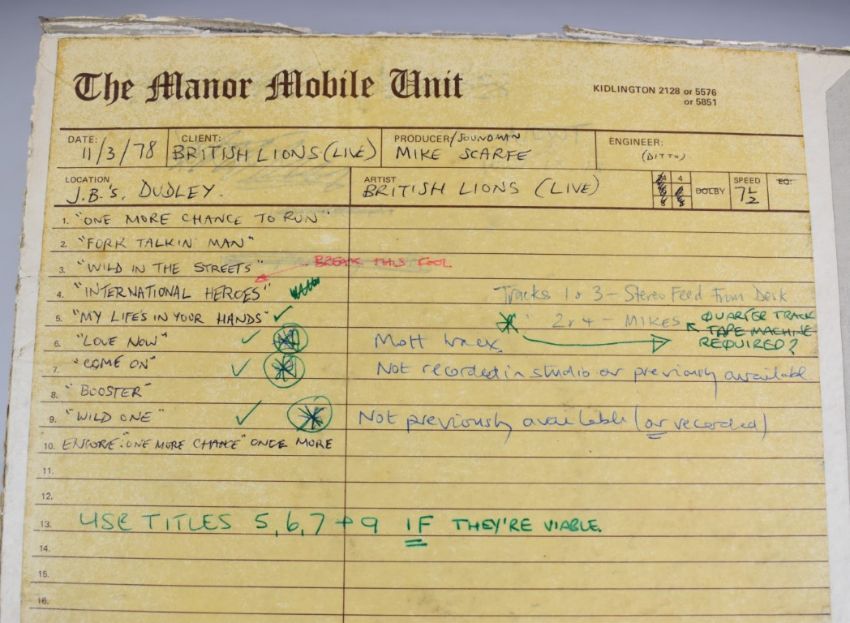 The Manor Mobile Unit
KIDLINGTON 2128 or 5576
or 5851
DATE: 11/3/78
CLIENT: BRITISH LIONS (LIVE)
PRODUCER/SOUNDMAN MIKE SCARFE
ENGINEER: (DITTO)
LOCATION J.B.'S, DUDLEY.
ARTIST BRITISH LIONS (LIVE)
4
8
DOLBY
SPEED 7½
EQ:
1. "ONE MORE CHANCE TO RUN"
2. "FORK TALKIN' MAN"
3. "WILD IN THE STREETS" BREAK THIS FOOL
4. "INTERNATIONAL HEROES" Tracks 1 & 3 - Stereo Feed From Desk
5. "MY LIFE'S IN YOUR HANDS" ✓ 2 & 4 - MIKES QUARTER TRACK
TAPE MACHINE
REQUIRED?
6. "LOVE NOW" ✓ Mott
7. "COME ON" ✓ Not recorded in studio or previously available
8. "BOOSTER"
9. "WILD ONE" ✓ Not previously available (or recorded)
10. ENCORE: "ONE MORE CHANCE" ONCE MORE
11.
12.
13. USE TITLES 5, 6, 7 + 9 IF THEY'RE VIABLE.
14.
15.
16.